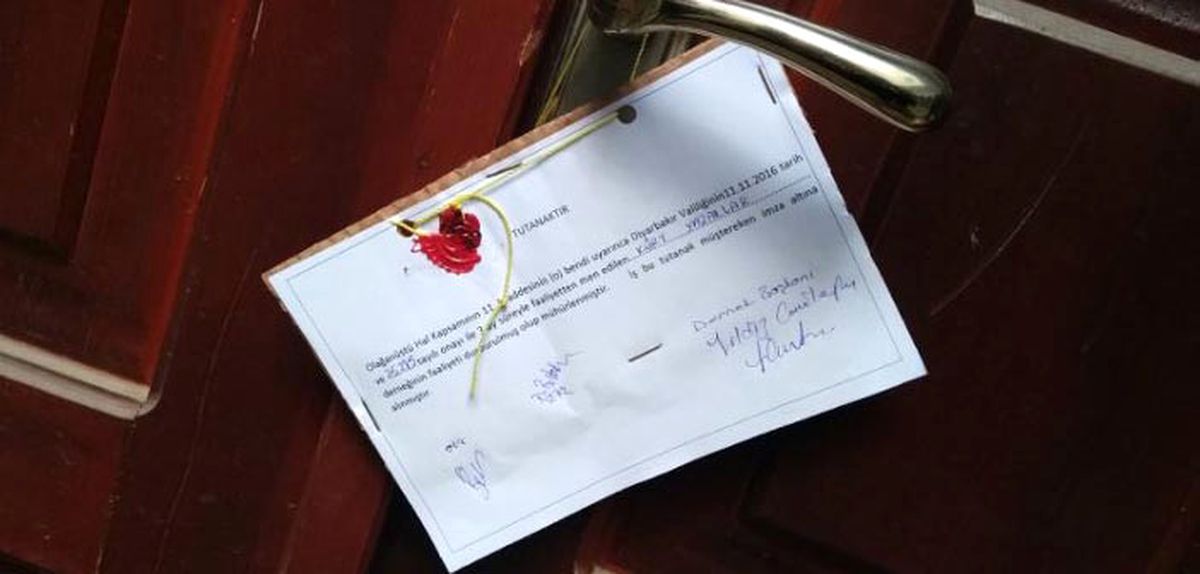 TUTANAKTIR
Olağanüstü Hal Kapsamının 11. maddesinin (o) bendi uyarınca Diyarbakır Valiliğinin 11.11.2016 tarih
ve sayılı onayı ile 3 ay süreyle faaliyetten men edilen
derneğinin faaliyeti durdurulmuş olup mühürlenmiştir. İş bu tutanak müştereken imza altına
alınmıştır.
Dernek Başkanı